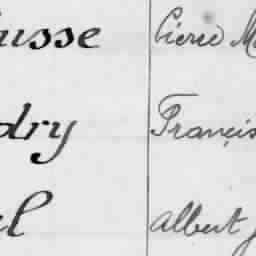 usse Pierre M
dry Francis
el Albert J